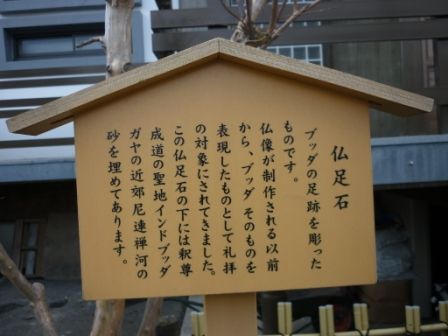 仏足石
ブッダの足跡を彫った
ものです。
仏像が制作される以前
から、ブッダそのものを
表現したものとして礼拝
の対象にされてきました。
この仏足石の下には釈尊
成道の聖地インドブッダ
ガヤの近郊尼連禅河の
砂を埋めてあります。